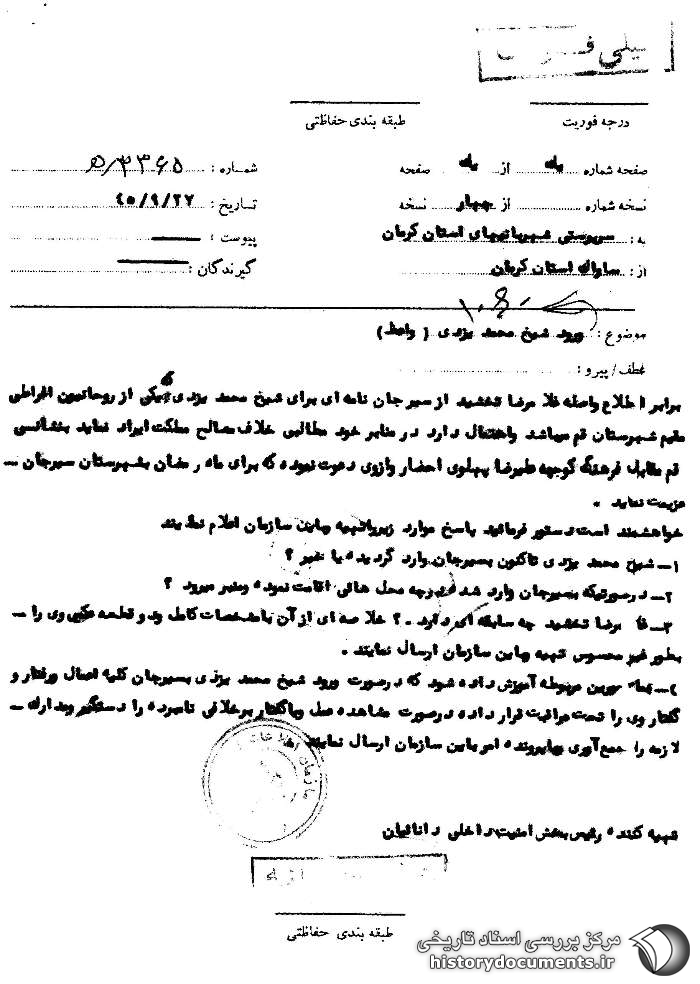 خیلی فوری
درجه فوریت
طبقه بندی حفاظتی
صفحه شماره یک از یک صفحه
شماره : ۳۳۶۵/ه
نسخه شماره از چهار نسخه
تاریخ : ۴۵/۹/۲۷
به : سرپرستی شهربانیهای استان کرمان
پیوست :
از : ساواک استان کرمان
گیرندگان :
موضوع : ورود شیخ محمد یزدی ( واعظ )
عطف / پیرو :
برابر اطلاع واصله غلامرضا تخشید از سیرجان نامه ای برای شیخ محمد یزدی که یکی از روحانیون افراطی
مقیم شهرستان قم میباشد واحتمال دارد در منابر خود مطالبی خلاف مصالح مملکت ایراد نماید بنشانی
قم مقابل فرهنگ کوچه علیرضا پهلوی احضار وازوی دعوت نموده که برای ماه رمضان بشهرستان سیرجان ــ
عزیمت نماید .
خواهشمند است دستور فرمائید پاسخ موارد زیرراتهیه وباین سازمان اعلام نمایند
۱ــ شیخ محمد یزدی تاکنون بسیرجان وارد گردیده یا خیر ؟
۲ــ درصورتیکه بسیرجان وارد شده در چه محل هائی اقامت نموده ومنبر میرود ؟
۳ــ غلامرضا تخشید چه سابقه ای دارد . ؟ خلاصه ای از آن بامشخصات کامل ودو قطعه عکس وی را ــ
بطور غیر محسوس تهیه وباین سازمان ارسال نمایند .
مامورین مربوطه آموزش داده شود که درصورت ورود شیخ محمد یزدی بسیرجان کلیه اعمال ورفتار و
گفتار وی را تحت مراقبت قرار داده درصورت مشاهده عمل ویاگفتار برخلافی نامبرده را دستگیر ومدارک ــ
لازمه را جمع آوری باین سازمان ارسال نمایند
تهیه کننده رئیس بخش امنیت داخلی دانائیان
طبقه بندی حفاظتی
مرکز بررسی اسناد تاریخی
historydocuments.ir